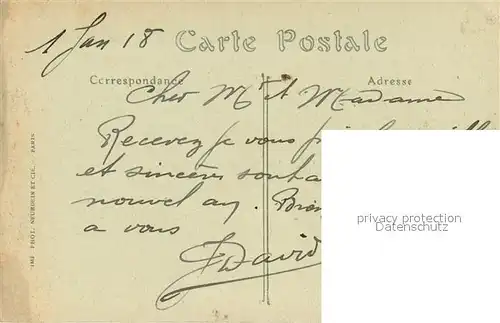 1 Jan 18
Carte Postale
Correspondance
Adresse
Cher Mr et Madame
Recevez je vous
et sincères souha
nouvel an. Bien
a vous
David
1442 PHOT. NEURDEIN ET CIE. PARIS
privacy protection
Datenschutz